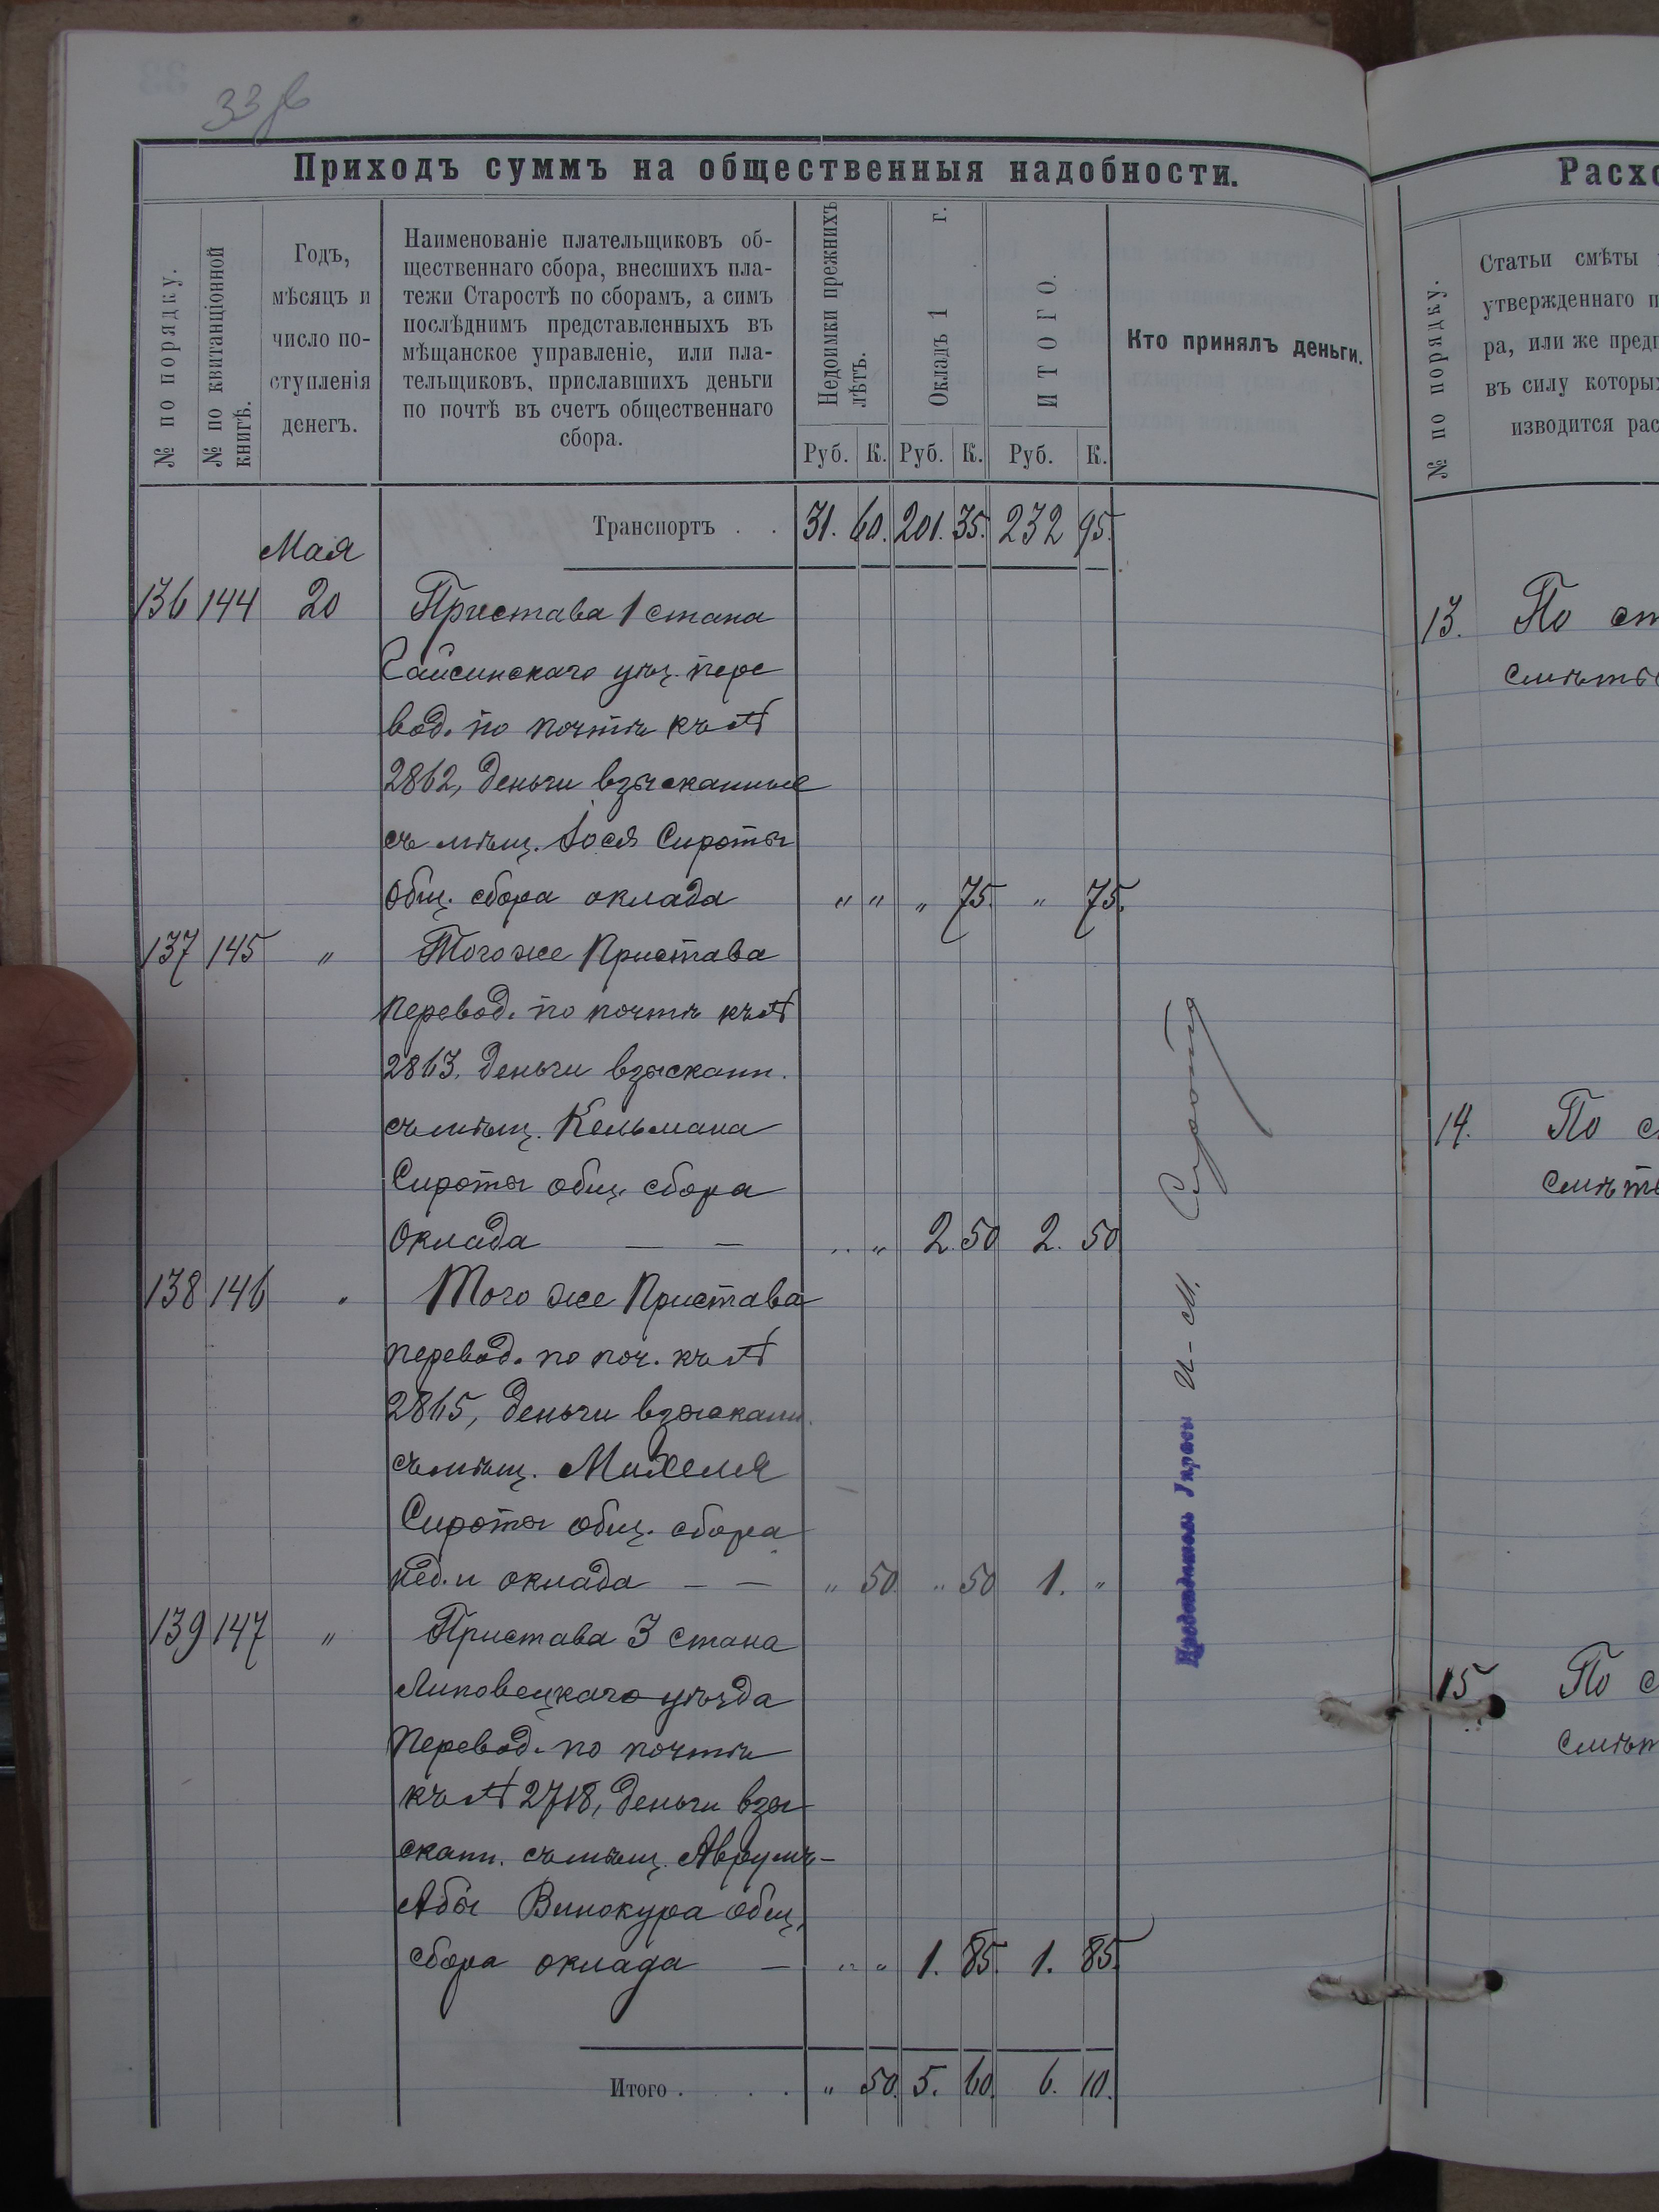 33 об
Приходъ суммъ на общественныя надобности.
№ по порядку.
№ по квитанціонной книгѣ.
Годъ,
мѣсяцъ и
число по-
ступленія
денегъ.
Наименованіе плательщиковъ об-
щественнаго сбора, внесшихъ пла-
тежи Старостѣ по сборамъ, а симъ
послѣднимъ представленныхъ въ
мѣщанское управленіе, или пла-
тельщиковъ, приславшихъ деньги
по почтѣ въ счетъ общественнаго
сбора.
Недоимки прежнихъ лѣтъ.
Окладъ 1 г.
ИТОГО.
Кто принялъ деньги.
Руб. К. Руб. К. Руб. К.
Транспортъ . . 31. 60. 201. 35. 232 95.
Мая
136 144 20 Пристава 1 стана
Гайсинскаго уѣз. пере
вод. по почтѣ къ №
2862, деньги взысканные
съ мѣщ. Іося Сироты
общ. сбора оклада " " " 75. " 75.
137 145 " Того же Пристава
перевод. по почтѣ къ №
2863, деньги взысканн.
съ мѣщ. Кельмана
Сироты общ. сбора
оклада — — " " 2. 50 2. 50
138 146 " Того же Пристава
перевод. по поч. къ №
2865, деньги взысканн.
съ мѣщ. Михеля
Сироты общ. сбора
нед. и оклада — — " 50 " 50 1. "
139 147 " Пристава 3 стана
Липовецкаго уѣзда
перевод. по почтѣ
къ № 2718, деньги взы
сканн. съ мѣщ. Аврумъ-
Абы Винокура общ.
сбора оклада — " " 1. 85. 1. 85.
Итого . . . " 50. 5. 60. 6. 10.
И-М. Сирота
Расхо
№ по порядку.
Статьи смѣты
утвержденнаго п
ра, или же предп
въ силу которых
изводится рас
13. По ст
смѣтѣ
14. По с
смѣтѣ
15 По с
смѣт